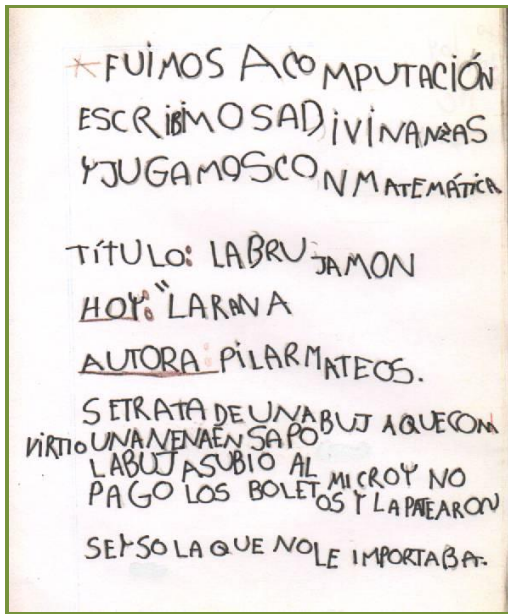 * FUIMOS A COMPUTACIÓN
ESCRIBIMOSADIVINANZAS
YJUGAMOSCON MATEMÁTICA
TÍTULO: LABRUJAMON
HOY: "LARANA
AUTORA: PILARMATEOS.
SETRATA DEUNABUJAQUECOM
VIRTIOUNANENAENSAPO
LABUJASUBIO AL MICROY NO
PAGO LOS BOLETOSY LAPATEARON
SEYSOLAQUE NOLE IMPORTABA.